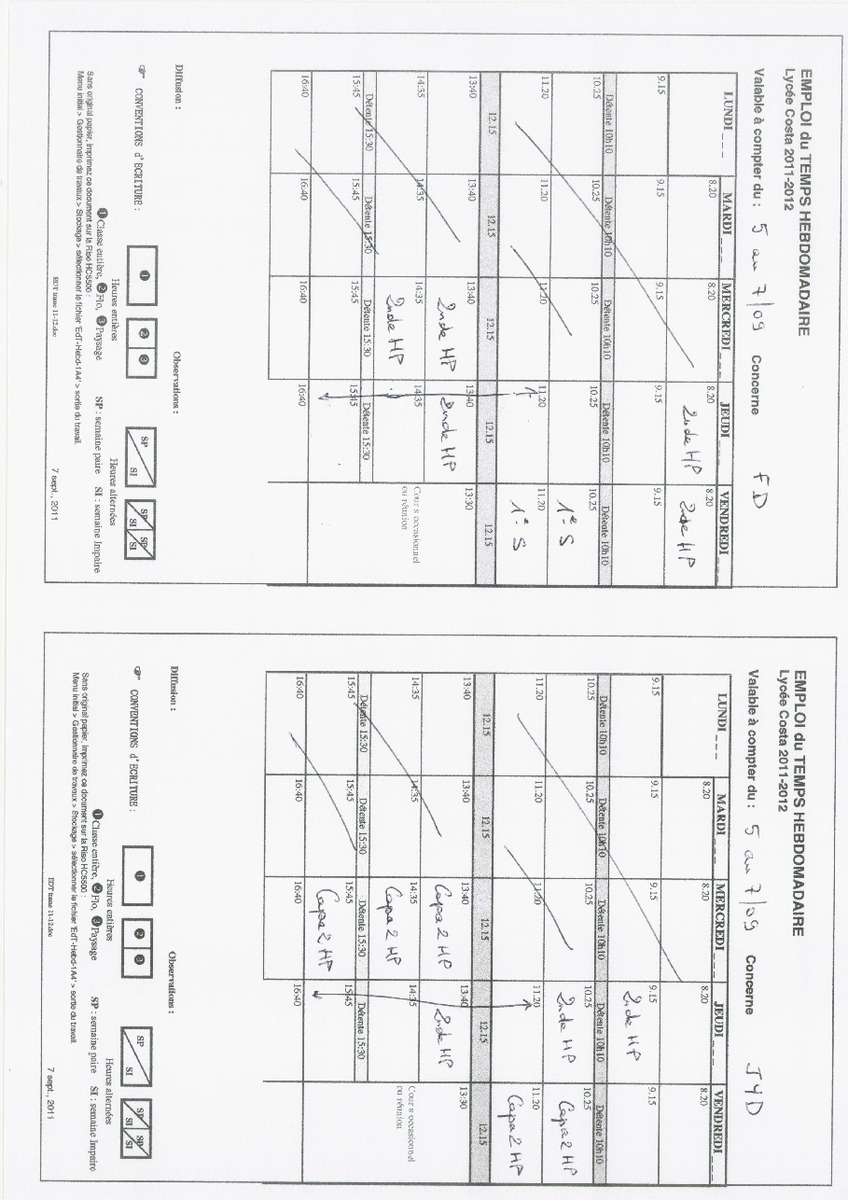 EMPLOI du TEMPS HEBDOMADAIRE
Lycée Costa 2011-2012
Valable à compter du : 5 au 7/09 Concerne FD
LUNDI _ _ _ MARDI _ _ _ MERCREDI _ _ _ JEUDI _ _ _ VENDREDI _ _ _
8.20 8.20 8.20 8.20
2nde HP 2nde HP
9.15 9.15 9.15 9.15 9.15
Détente 10h10 Détente 10h10 Détente 10h10 Détente 10h10 Détente 10h10
10.25 10.25 10.25 10.25 10.25
1e S
11.20 11.20 11.20 11.20 11.20
1e S
12.15 12.15 12.15 12.15 12.15
13:40 13:40 13:40 13:40 13:30
2nde HP 2nde HP
Cour s occasionnel
ou réunion
14:35 14:35 14:35 14:35
2nde HP
Détente 15:30 Détente 15:30 Détente 15:30 Détente 15:30
15:45 15:45 15:45 15:45
16:40 16:40 16:40 16:40
Diffusion : Observations :
☞ CONVENTIONS d'ECRITURE :
❶ ❷ ❸ SP SI SP SI SP SI
Heures entières Heures alternées
❶Classe entière, ❷Flo, ❸Paysage SP : semaine paire SI : semaine Impaire
Sans original papier, imprimez ce document sur la Riso HC5500 :
Menu initial > Gestionnaire de travaux > Stockage > sélectionner le fichier 'EdT-Hebd-1A4' > sortie du travail.
EDT trame 11-12.doc 7 sept., 2011
EMPLOI du TEMPS HEBDOMADAIRE
Lycée Costa 2011-2012
Valable à compter du : 5 au 7/09 Concerne JYD
LUNDI _ _ _ MARDI _ _ _ MERCREDI _ _ _ JEUDI _ _ _ VENDREDI _ _ _
8.20 8.20 8.20 8.20
9.15 9.15 9.15 9.15 9.15
2nde HP
Détente 10h10 Détente 10h10 Détente 10h10 Détente 10h10 Détente 10h10
10.25 10.25 10.25 10.25 10.25
2nde HP Capa 2 HP
11.20 11.20 11.20 11.20 11.20
Capa 2 HP
12.15 12.15 12.15 12.15 12.15
13:40 13:40 13:40 13:40 13:30
Capa 2 HP 2nde HP
Cour s occasionnel
ou réunion
14:35 14:35 14:35 14:35
Capa 2 HP
Détente 15:30 Détente 15:30 Détente 15:30 Détente 15:30
15:45 15:45 15:45 15:45
Capa 2 HP
16:40 16:40 16:40 16:40
Diffusion : Observations :
☞ CONVENTIONS d'ECRITURE :
❶ ❷ ❸ SP SI SP SI SP SI
Heures entières Heures alternées
❶Classe entière, ❷Flo, ❸Paysage SP : semaine paire SI : semaine Impaire
Sans original papier, imprimez ce document sur la Riso HC5500 :
Menu initial > Gestionnaire de travaux > Stockage > sélectionner le fichier 'EdT-Hebd-1A4' > sortie du travail.
EDT trame 11-12.doc 7 sept., 2011